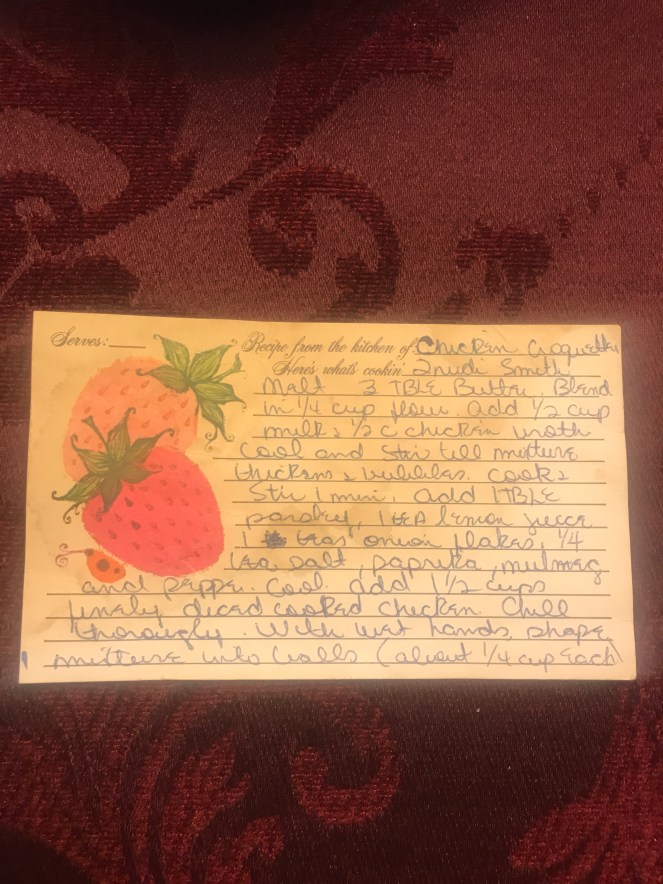 Serves:
Recipe from the kitchen of Chicken Croquettes
Here's what's cookin' Trudi Smith
Melt 3 TBLE Butter. Blend
in 1/4 cup flour add 1/2 cup
milk & 1/2 c chicken broth
Cool and Stir till mixture
thickens & bubbles. Cook &
Stir 1 min. add 1 TBLE
parsley, 1 tea lemon juece
1 teas onion flakes 1/4
tea salt, paprika, nutmeg
and peppe. Cool. add 1 1/2 cups
finely diced cooked chicken. Chill
thorougly. With wet hands, shape
mixture into balls (about 1/4 cup each)